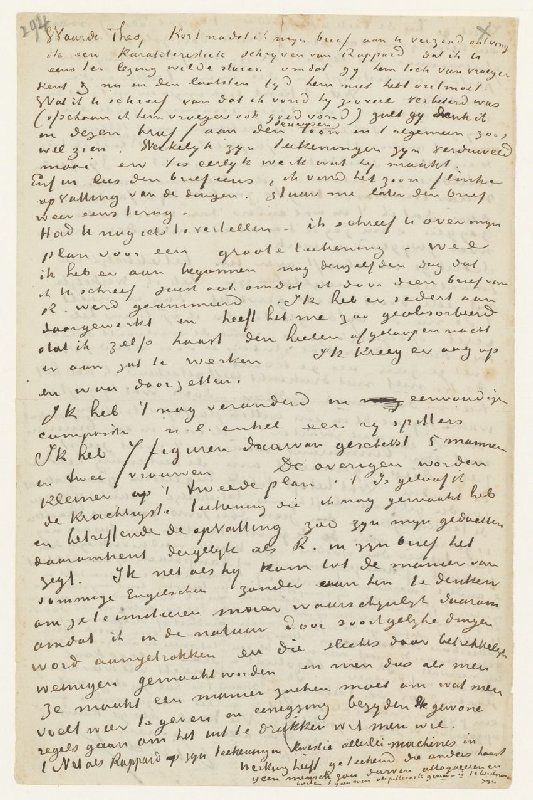 294
X
Waarde Theo, Kort nadat ik mijn brief aan u verzond ontving
ik een karakteristiek schrijven van Rappard dat ik u
eens ter lezing wilde sturen omdat gij hem toch van vroeger
kent & nu in den laatsten tijd hem niet hebt ontmoet.
Wat ik u schreef van dat ik vond hij zooveel veranderd was
(ofschoon ik hem vroeger ook goed vond) zult gij denk ik
in dezen brief aan den toon in 't algemeen zoo
wel zien. Werkelijk zijn teekeningen zijn verduiveld
mooi en 't is eerlijk werk wat hij maakt.
Enfin lees den brief eens, ik vond het zoo'n flinke
opvatting van de dingen. Stuur me later den brief
weer eens terug.
Had u nog iets te vertellen – ik schreef u over mijn
plan voor een groote teekening – wel
ik heb er aan begonnen nog denzelfden dag dat
ik u schreef juist ook omdat ik door dien brief van
R. werd geanimeerd. Ik heb er sedert aan
doorgewerkt en heeft het me zoo geabsorbeerd
dat ik zelfs haast den heelen afgeloopen nacht
er aan zat te werken. Ik kreeg er oog op
en wou doorzetten.
Ik heb 't nog veranderd in eenvoudiger
compositie n.l. enkel een rij spitters
Ik heb 7 figuren daarvan geschetst 5 mannen
en twee vrouwen De overigen worden
kleiner op 't tweede plan. 't Is geloof ik
de krachtigste teekening die ik nog gemaakt heb
en betreffende de opvatting zoo zijn mijn gedachten
daaromtrent degelijk als R. in zijn brief het
zegt. Ik net als hij kom tot de manier van
sommige Engelschen zonder aan hen te denken
om ze te imiteeren maar waarschijnlijk daarom
omdat ik in de natuur door soortgelijke dingen
word aangetrokken en die slechts door betrekkelijk
weinigen gemaakt worden en men dus als men
ze maakt een manier zoeken moet om wat men
voelt weer te geven en eenigzins bezijden de gewone
regels gaan om het uit te drukken wat men wil.
(Net als Rappard op zijn teekeningen kwestie allerlei machines in
werking heeft geteekend die anders haast
geen mensch zou durven attaqueeren